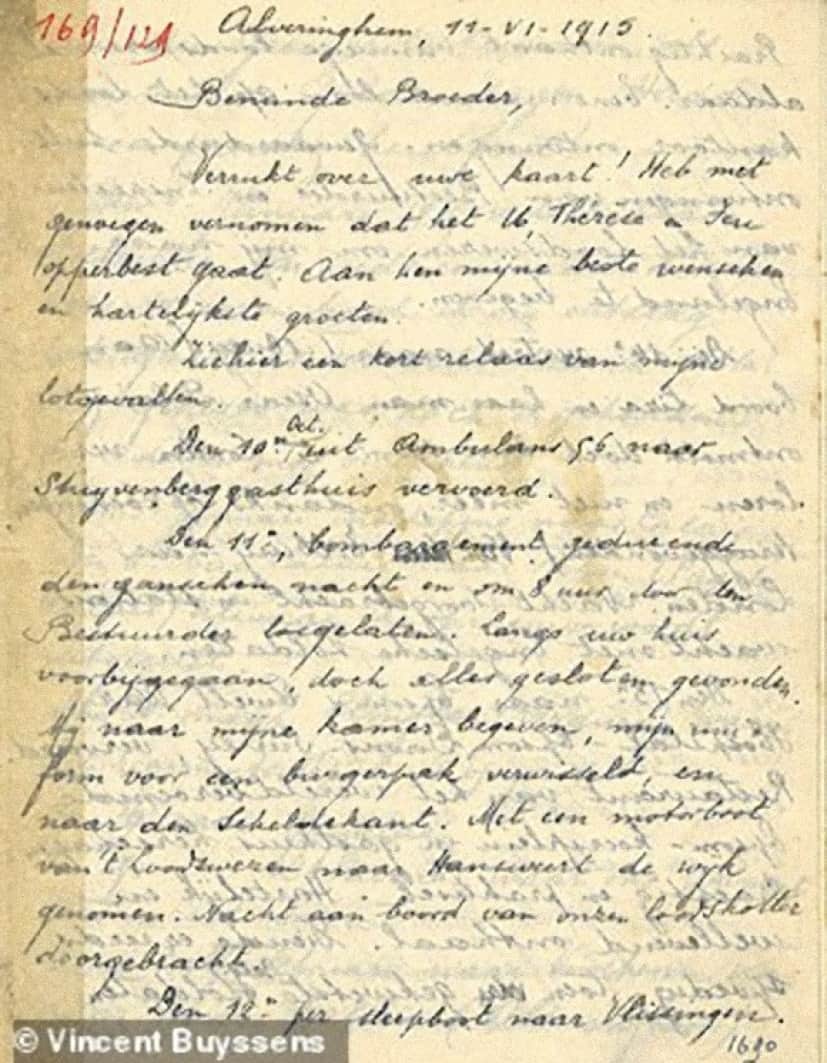 169/129
Alveringhem, 11-VI-1915.
Beminde Broeder,
Verrukt over uwe kaart! Heb met
genoegen vernomen dat het U, Thérèse en
opperbest gaat. Aan hen mijne beste wenschen
en hartelijkste groeten.
Ziehier een kort relaas van mijne
lotgevallen.
Den 10n Oct. uit Ambulans 56 naar
Stuyvenberggasthuis vervoerd.
Den 11n, bombardement gedurende
den ganschen nacht en om 8 uur door den
Bestuurder losgelaten. Langs uw huis
voorbijgegaan, doch alles gesloten gevonden.
Mij naar mijne kamer begeven, mijn uni-
form voor een burgerpak verwisseld, en
naar den Scheldekant. Met een motorboot
van 't Loodswezen naar Hansweert de wijk
genomen. Nacht aan boord van onzen loodskotter
doorgebracht.
Den 12n per sleepboot naar Vlissingen.
© Vincent Buyssens
1680